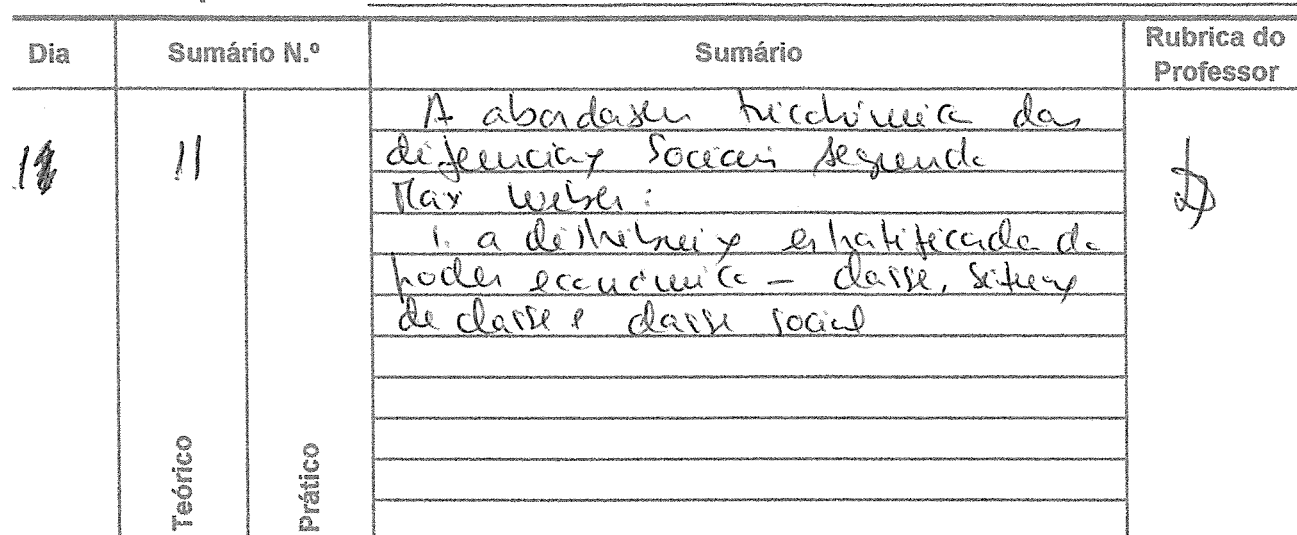 Dia Sumário N.º Sumário Rubrica do Professor
11 A abordagem tricotómica das
diferenciações sociais segundo
Max Weber:
1. a distribuição estratificada do
poder económico – classe, situação
de classe e classe social
Teórico Prático